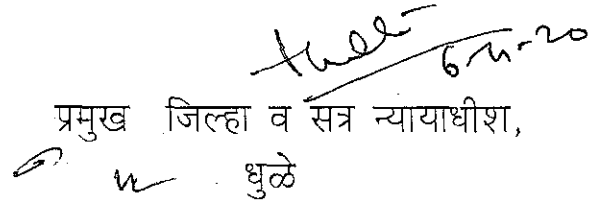 6-11-20
प्रमुख जिल्हा व सत्र न्यायाधीश,
धुळे